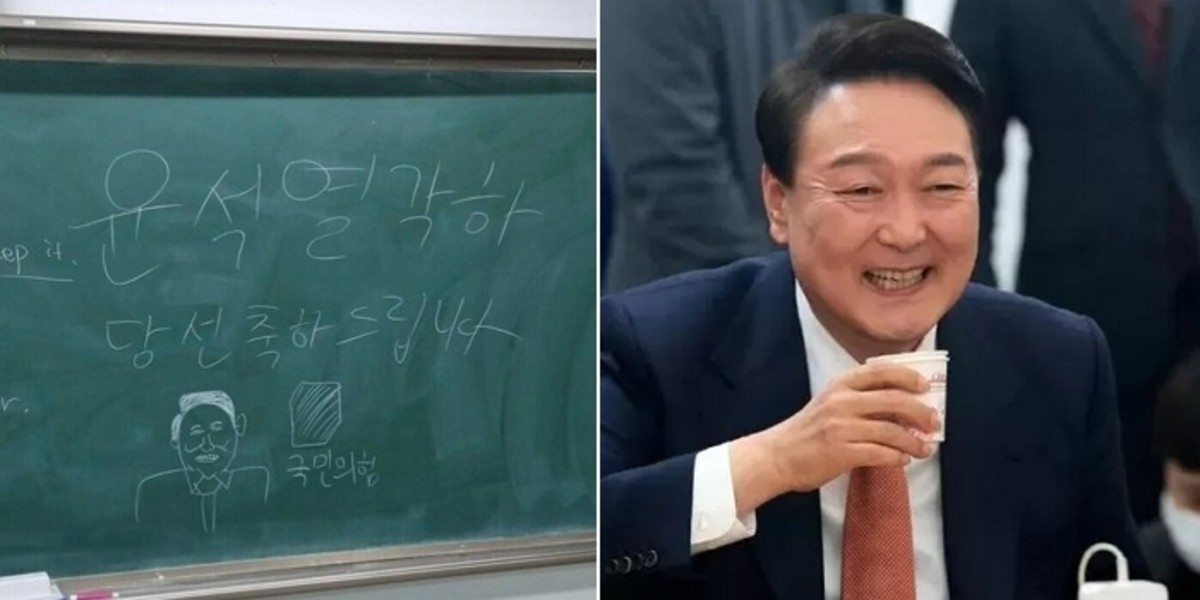 윤석열 각하
ep it.
당선 축하드립니다
r.
국민의힘